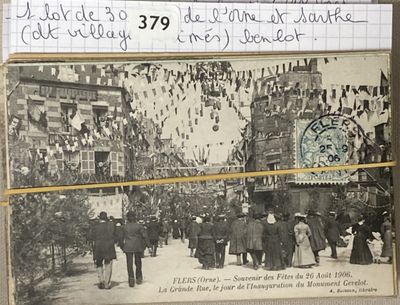 1 lot de 30 379 de l'Orne et Sarthe
(dt village imés) ben lot.
FLERS
25
06
FLERS (Orne). — Souvenir des Fêtes du 26 Août 1906.
La Grande Rue, le jour de l'Inauguration du Monument Gévelot.